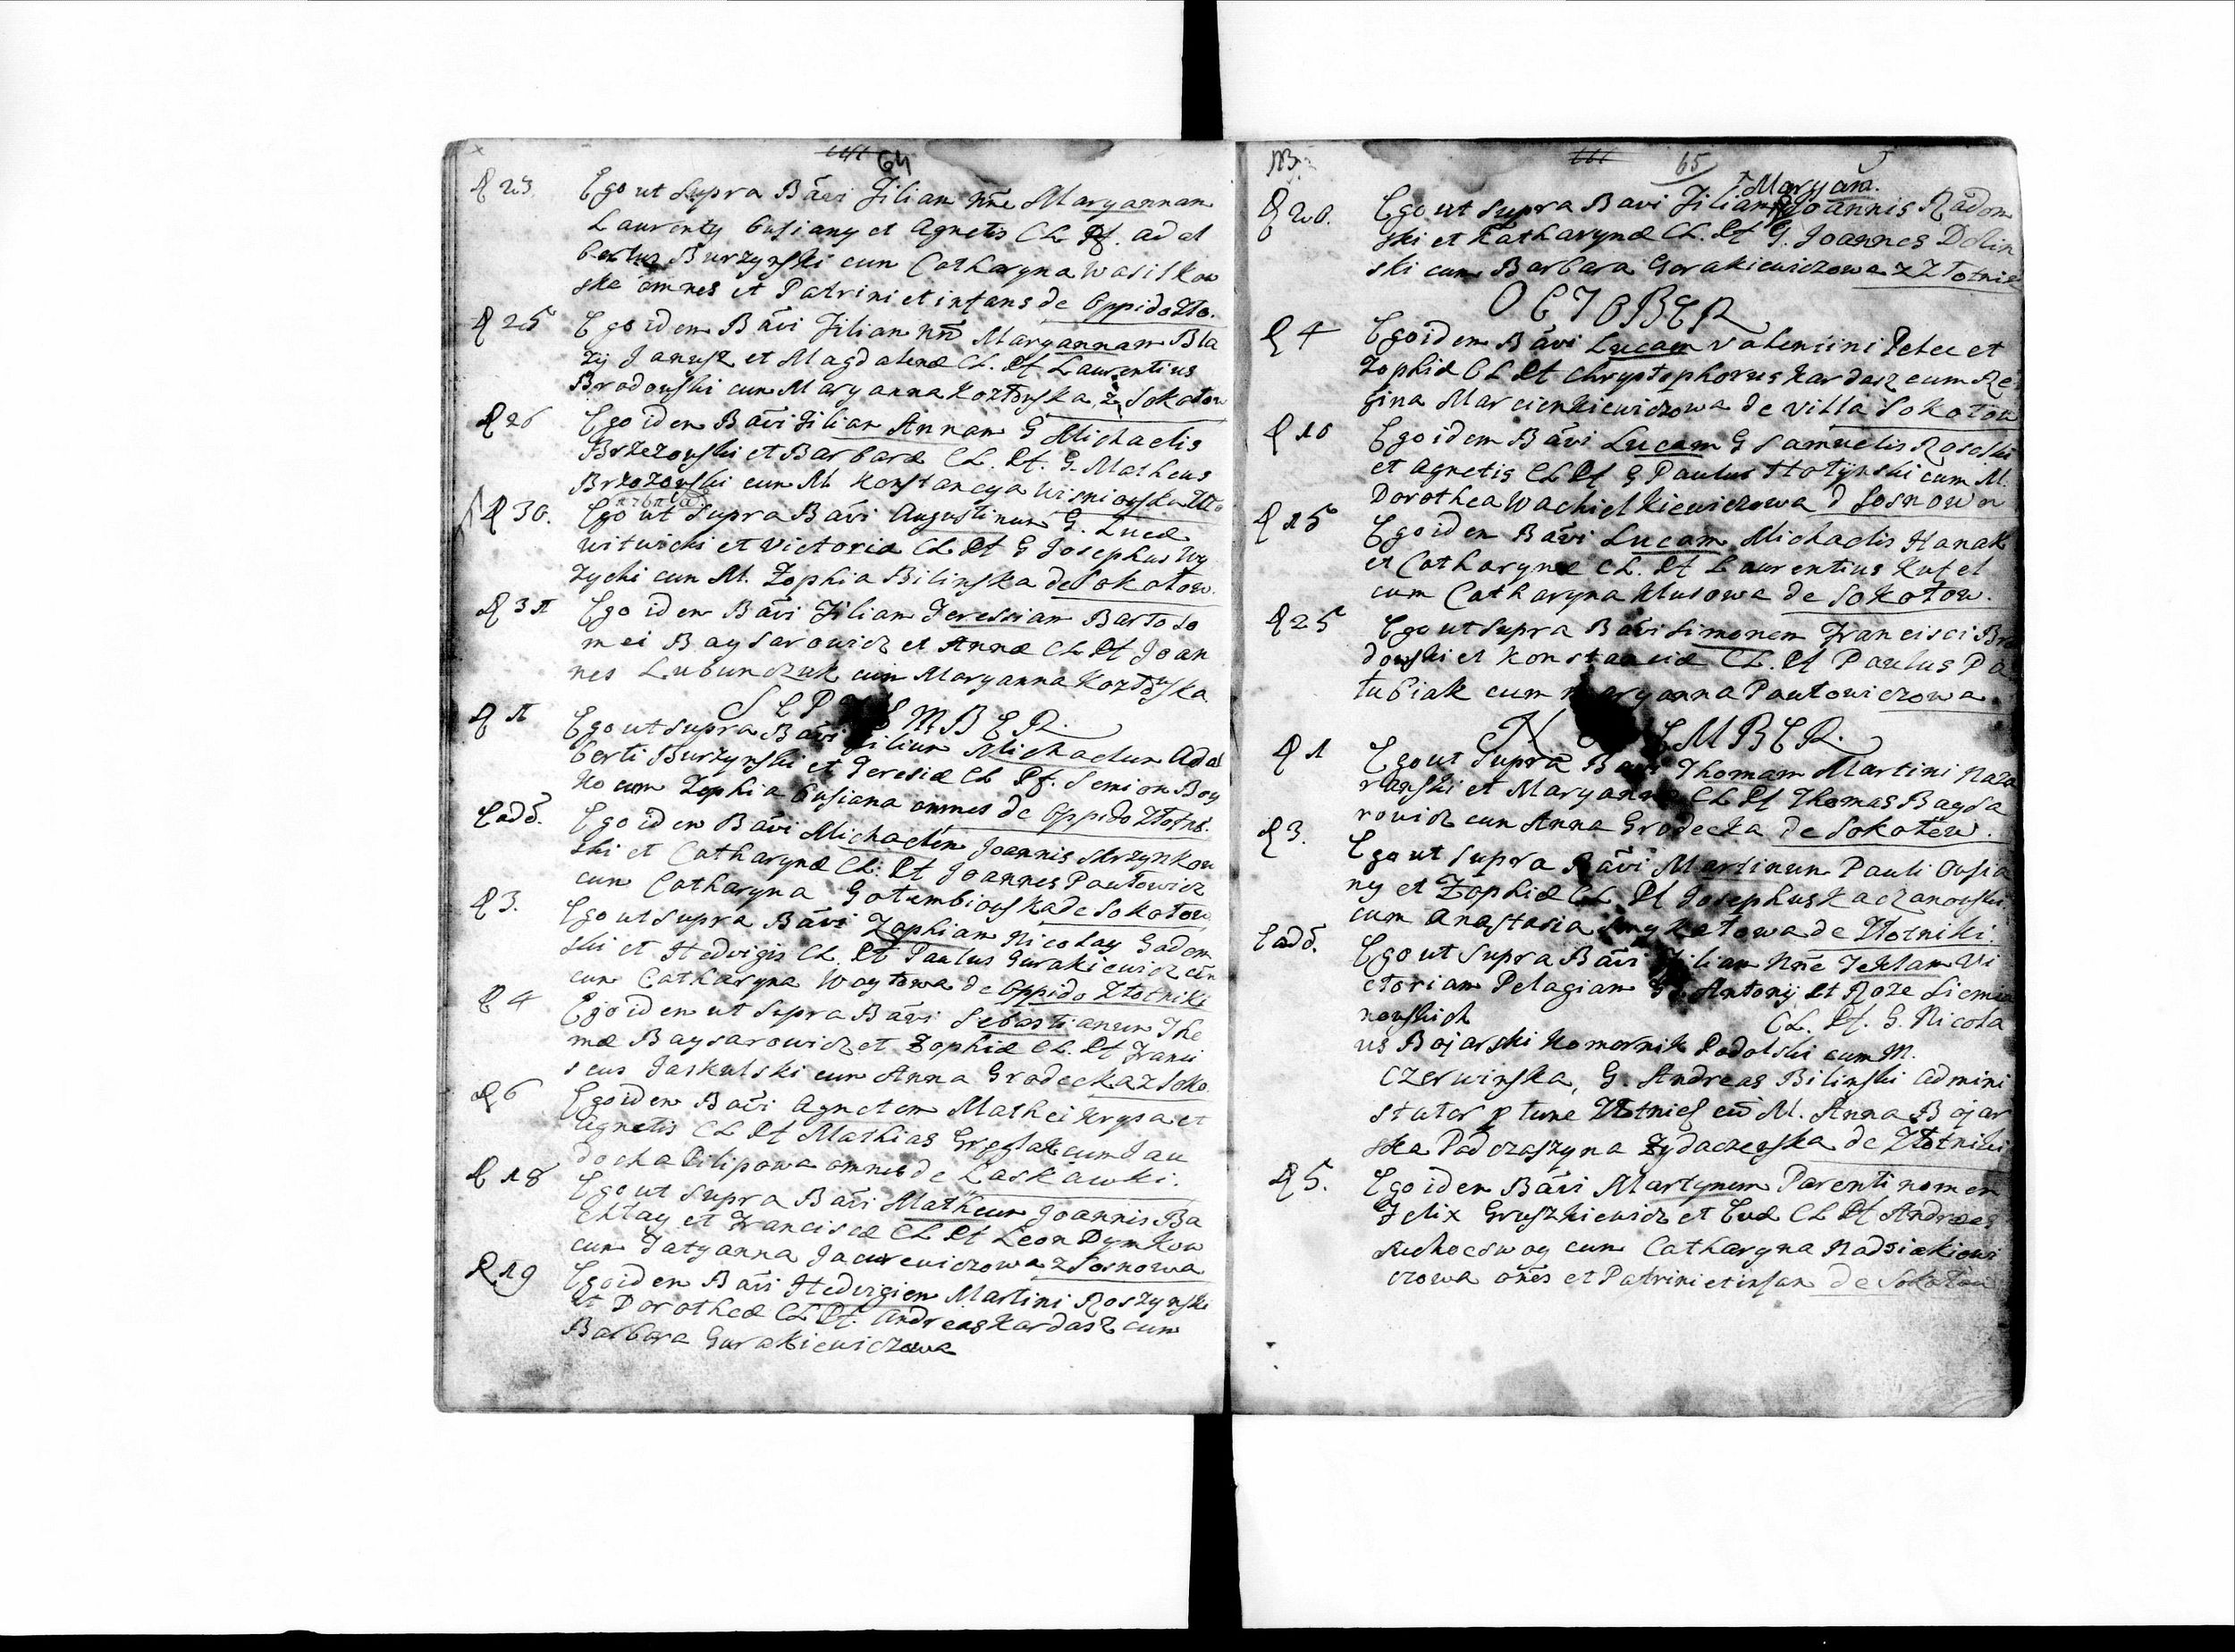 64
D 23. Ego ut Supra Bavi Filiam nne Maryannam
Laurenty Busiany et Agnetis CL Pf. Adal
bertus Burzynski cum Catharyna Wasilkow
ska omnes et Patrini et infans de Oppido Zło.
D 25 Ego idem Bavi Filiam nn Maryannam Bla
zij Janusz et Magdalenæ CL. Pf Laurentius
Brodowski cum Maryanna Kozłowska z Sokołow
D 26 Ego idem Bavi Filiam Annam G Michaelis
Brzezowski et Barbaræ CL. Pf. G. Matheus
Brzozowski cum M Konstancya Wisniowska Zło
D 30. Ego ut Supra Bavi Augustinum G. Lucæ
Witwicki et Victoriæ CL Pf G Josephus Wy
zycki cum M. Zophia Bilinska de Sokołow.
D 31 Ego idem Bavi Filiam Teressiam Bartolo
mei Baysarowicz et Annæ CL Pf Joan
nes Lubunczuk cum Maryanna Kozłowska
SEP EMBER.
D 1 Ego ut supra Bavi Filium Michaelum Adal
berti Burzynski et Teresiæ CL Pf. Semion Boy
ko cum Zophia Busiana omnes de Oppido Złotni.
Eadd. Ego idem Bavi Michaelem Joannis Skrzynkow
ski et Catharynæ CL. Pf Joannes Pawłowicz
cum Catharyna Gołembiowska de Sokołow
D 3. Ego ut supra Bavi Zophiam Nicolay Gadom
ski et Hedvigis CL. Pf Paulus Gurakiewicz cum
cum Catharyna Woytowa de Oppido Złotniki
D 4 Ego idem ut Supra Bavi Sebastianum Tho
mæ Baysarowicz et Zophiæ CL. Pf Franci
scus Jaskulski cum Anna Grodecka z Soko.
D 6 Ego idem Bavi Agnetem Mathei Krypa et
Agnetis CL Pf Mathias Greglak cum Jau
docha Pilipowa omnes de Laskawki.
D 18 Ego ut Supra Bavi Matheum Joannis Ba
chtay et Franciscæ CL Pf Leon Dymkow
cum Tatyanna Jacurewiczowa z Sosnowa
D 19 Ego idem Bavi Hedvigiem Martini Roszynski
et Dorotheæ CL Pf. Andreas Kardasz cum
Barbara Gurakiewiczowa
65
Maryam.
D 20. Ego ut supra Bavi Filiam Joannis Radom
ski et Katharynæ CL. Pf G. Joannes Dolin
ski cum Barbara Gorakiewiczowa z Złotnik
OCTOBER
D 4 Ego idem Bavi Lucam Valentini Pelec et
Zophiæ CL Pf Chrystophorus Kardasz cum Re
gina Marcienkiewiczowa de Villa Sokołow
D 10 Ego idem Bavi Lucam G Samuelis Rosolski
et Agnetis CL Pf G Paulus Hołynski cum M.
Dorothea Wachielkiewiczowa d Sosnowa
D 15 Ego idem Bavi Lucam Michaelis Hanak
et Catharynæ CL. Pf Laurentius Kusel
cum Catharyna Klusowa de Sokołow.
D 25 Ego ut Supra Bavi Simonem Francisci Bro
dowski et Konstanciæ CL. Pf Paulus Pa
łubiak cum Maryanna Pawłowiczowa.
N EMBER.
D 1 Ego ut Supra Bavi Thomam Martini Naza
ranski et Maryannæ CL Pf Thomas Baysa
rowicz cum Anna Grodecka de Sokołow.
D 3. Ego ut Supra Bavi Martinum Pauli Busia
ny et Zophiæ CL Pf Josephus Kaczanowski
cum Anastasia Smykałowa de Złotniki.
Eadd. Ego ut Supra Bavi Filiam Nne Teklam Vi
ctoriam Pelagiam G. Antonij et Roze Siemia
nowskich CL. Pf. G. Nicola
us Bojarski Komornik Podolski cum M.
Czerwinska, G. Andreas Bilinski Admini
strator p tunc Złotnies cu M. Anna Bojar
ska Podczaszyna Zydaczewska de Złotniki
D 5. Ego idem Bavi Martynum Parenti nomen
Felix Gruszkiewicz et Evæ CL Pf Andreas
Suchoeswoy cum Catharyna Nadsiakiewi
czowa ones et Patrini et infan de Sokołow